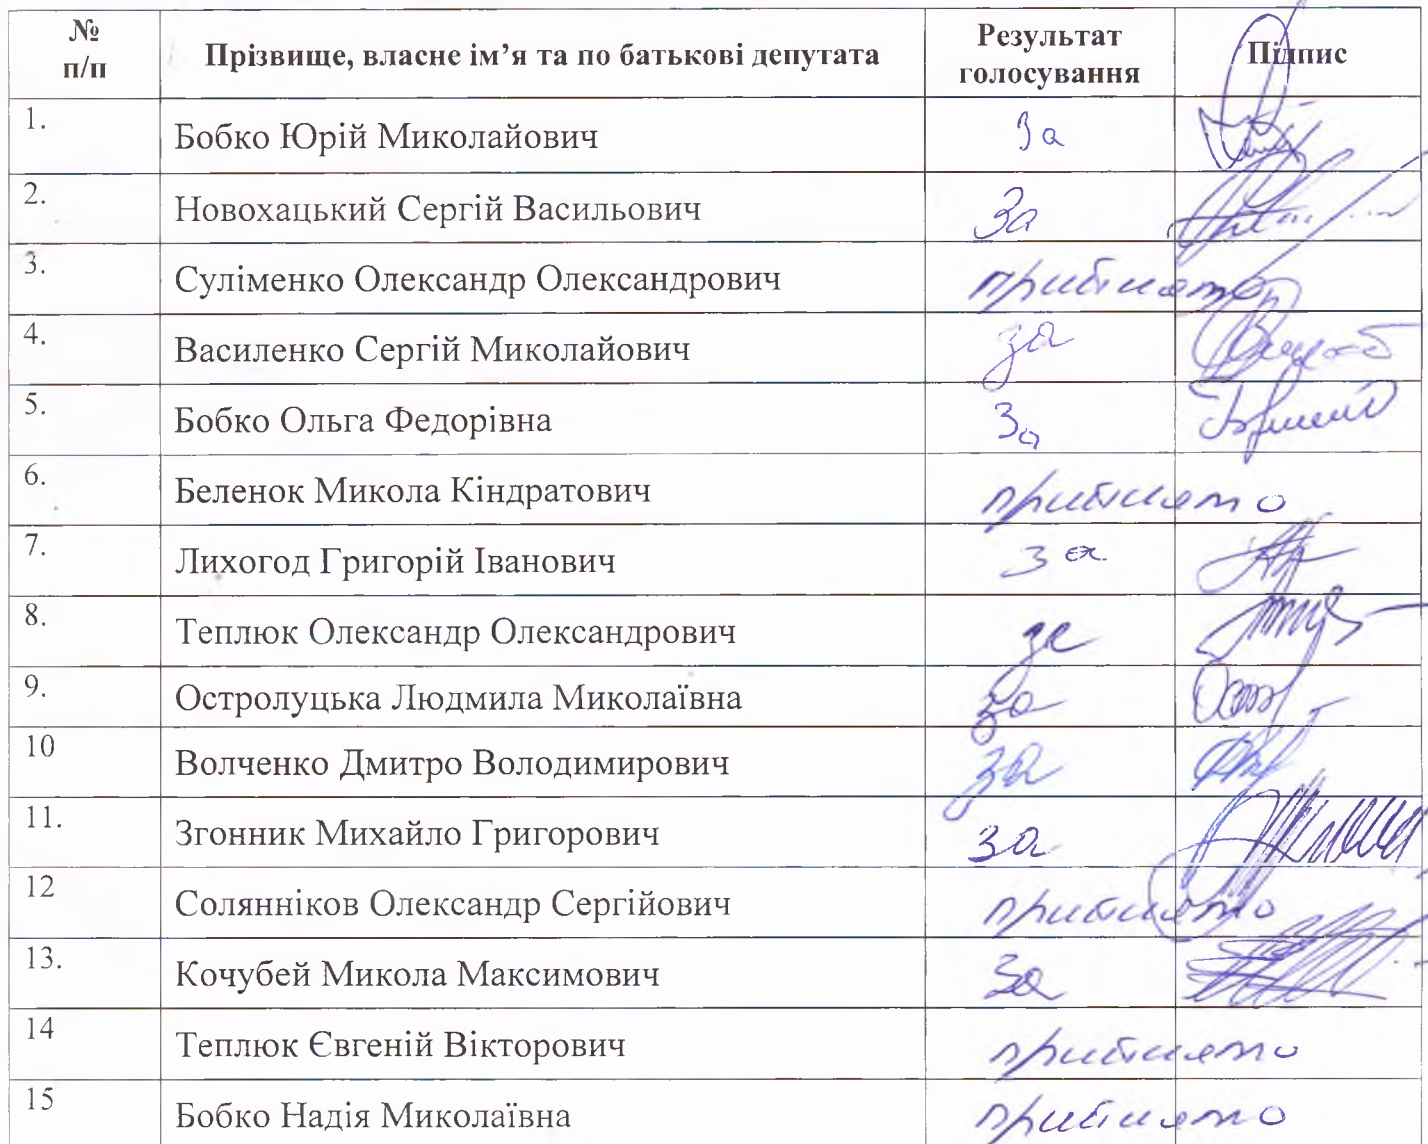 № п/п Прізвище, власне ім’я та по батькові депутата Результат голосування Підпис
1. Бобко Юрій Миколайович За
2. Новохацький Сергій Васильович За
3. Суліменко Олександр Олександрович
4. Василенко Сергій Миколайович за
5. Бобко Ольга Федорівна За
6. Беленок Микола Кіндратович
7. Лихогод Григорій Іванович За
8. Теплюк Олександр Олександрович за
9. Остролуцька Людмила Миколаївна за
10 Волченко Дмитро Володимирович за
11. Згонник Михайло Григорович за
12 Солянніков Олександр Сергійович
13. Кочубей Микола Максимович За
14 Теплюк Євгеній Вікторович
15 Бобко Надія Миколаївна